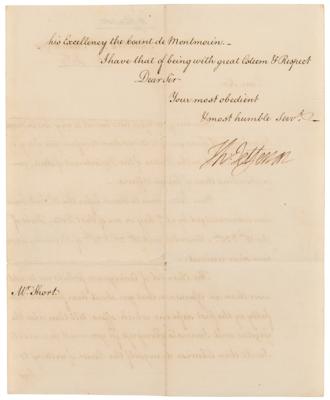 his Excellency the Count de Montmorin. —
I have that of being with great Esteem & Respect
Dear Sir
Your most obedient
& most humble Servt.
Th: Jefferson
Mr. Short.